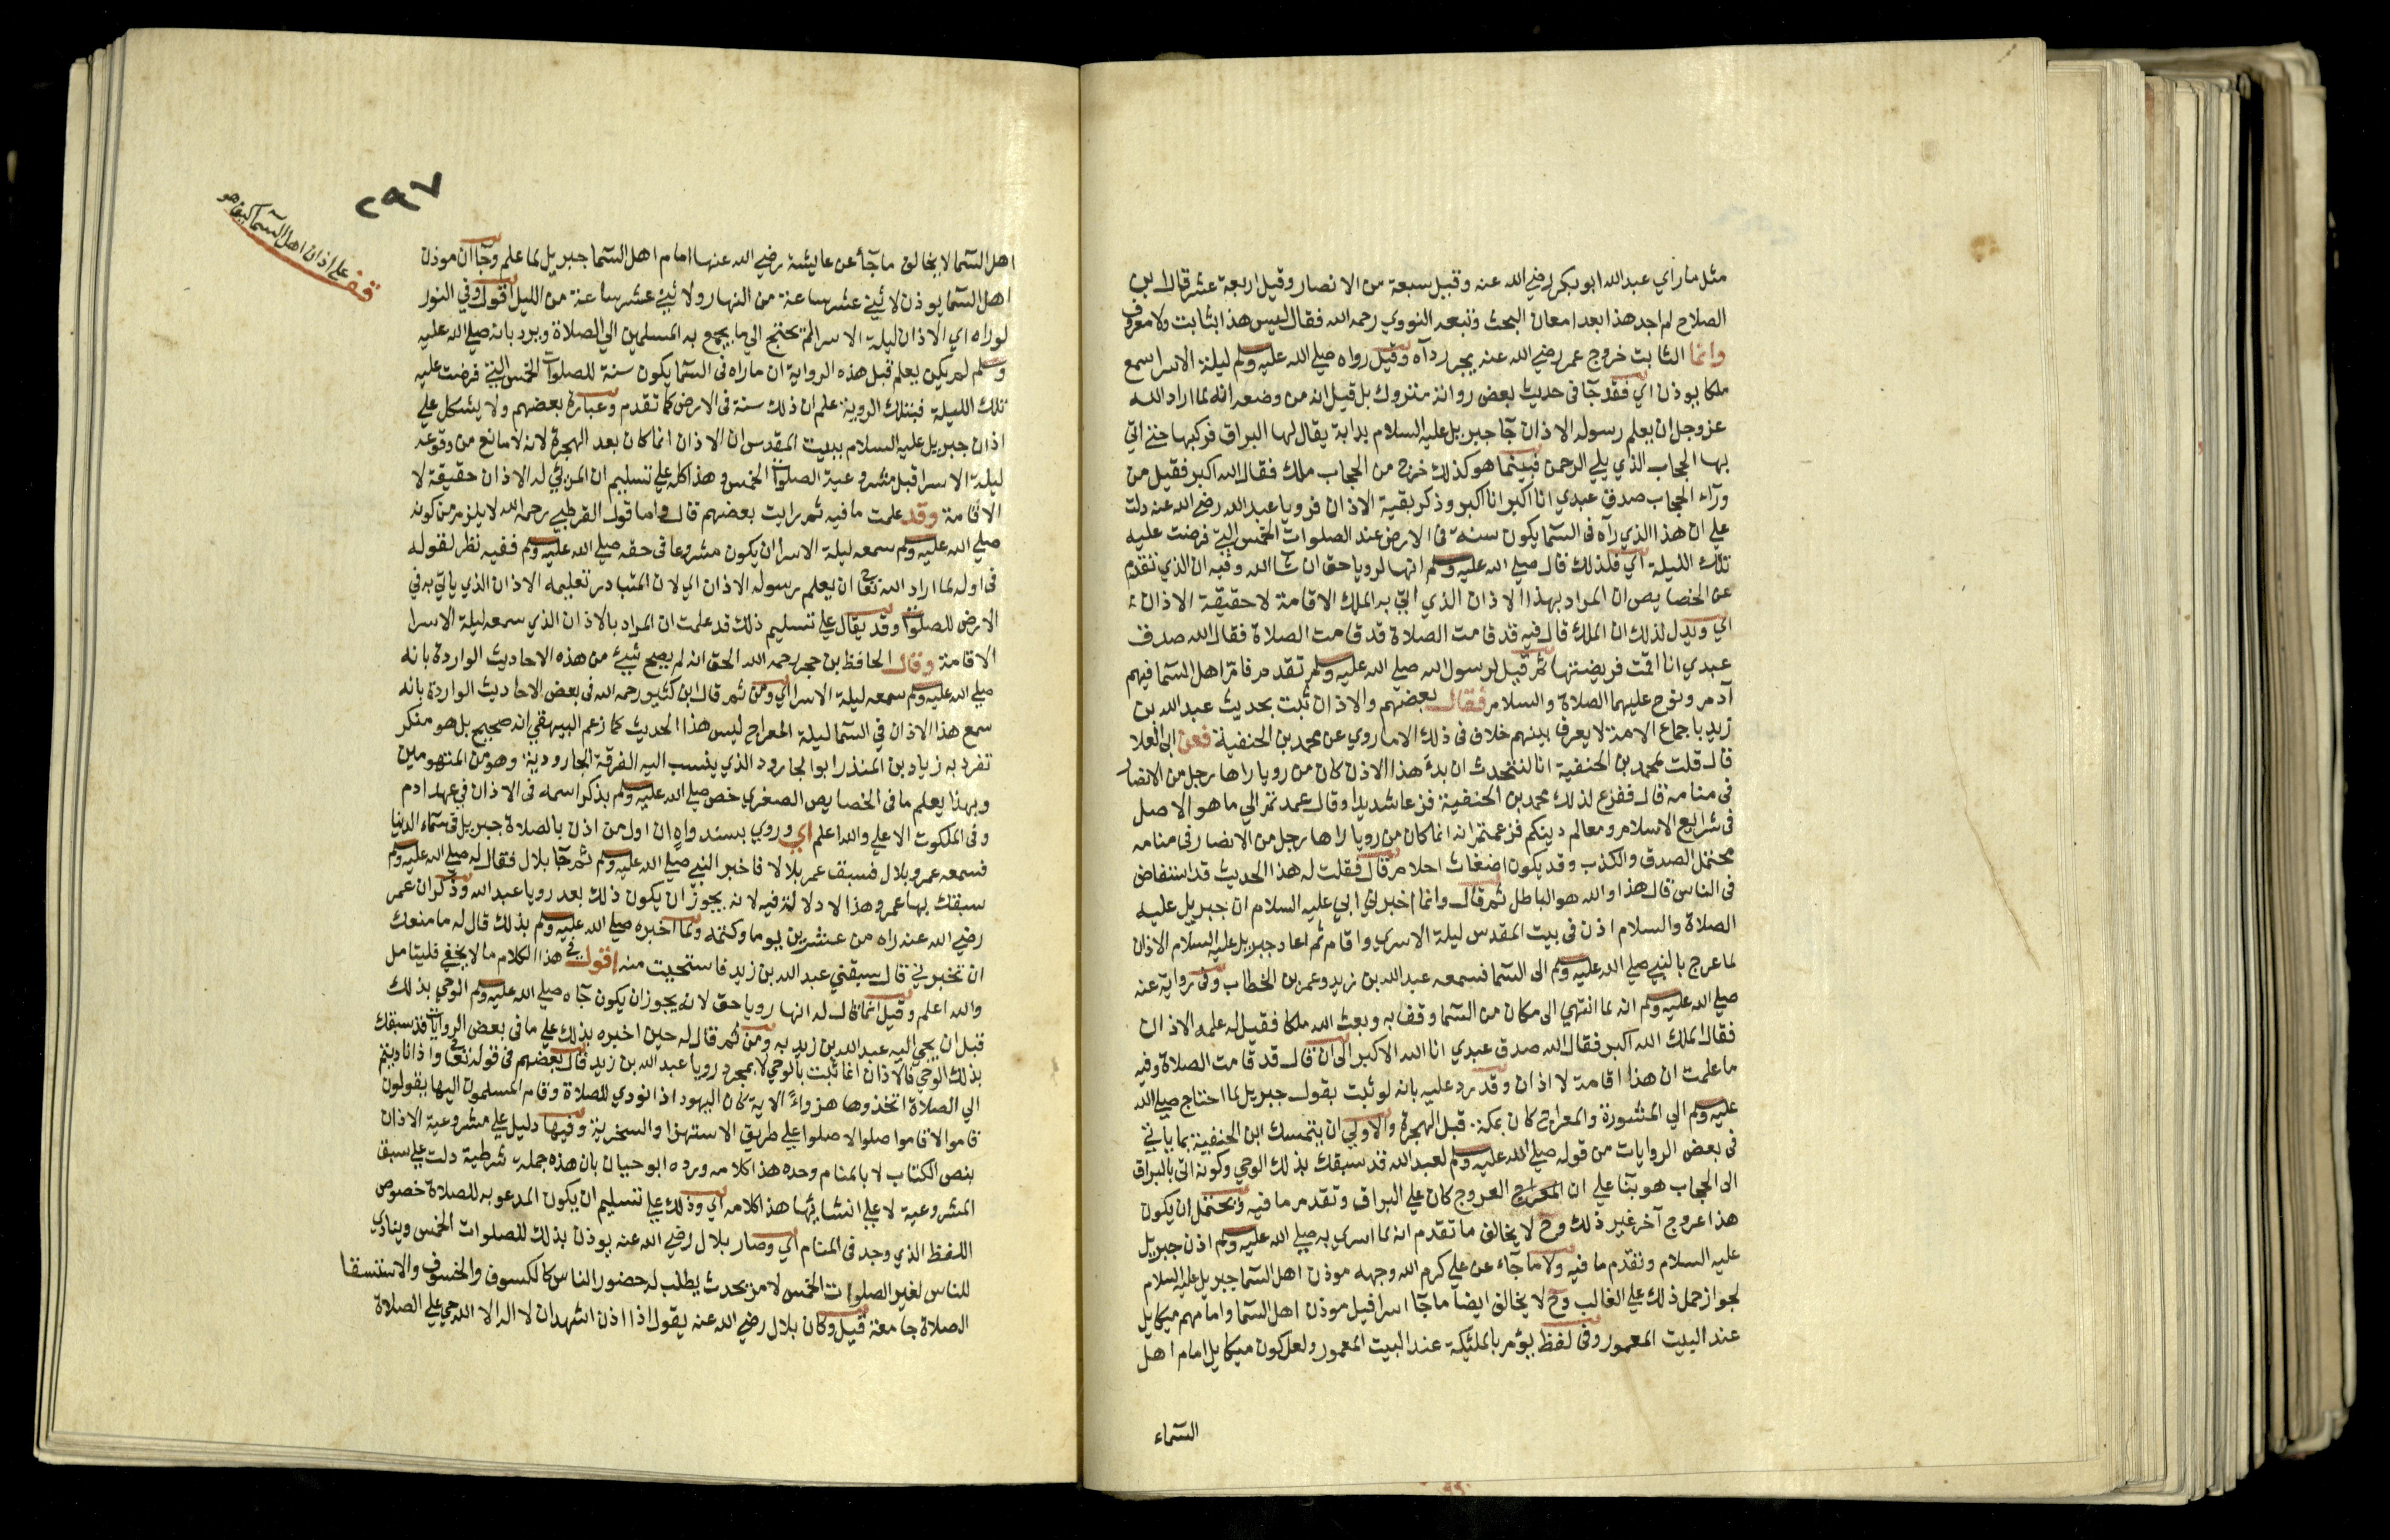 مثل ما راي عبدالله ابو بكر رضي الله عنه وقيل سبعة من الانصار وقيل اربعة عشر قال ابن
الصلاح لم اجد هذا بعد امعان البحث وتبعه النووي رحمه الله فقال ليس هذا بثابت ولا معروف
وانما الثابت خروج عمر رضي الله عنه يجر ردآه وقيل رواه صلي الله عليه وسلم ليلة الاسرا سمع
ملكا يوذن اي فقد جآ في حديث بعض رواته متروك بل قيل انه من وضعه انه لما اراد الله
عز وجل ان يعلم رسوله الاذان جآ جبريل عليه السلام بدابة يقال لها البراق فركبها حتي اتي
بها الحجاب الذي يلي الرحمن فبينما هو كذلك خرج من الحجاب ملك فقال الله اكبر فقيل من
ورآء الحجاب صدق عبدي انا اكبر انا اكبر وذكر بقية الاذان فرويا عبدالله رضي الله عنه دلت
علي ان هذا الذي رآه في السما يكون سنة في الارض عند الصلوات الخمس التي فرضت عليه
تلك الليلة اي فلذلك قال صلي الله عليه وسلم انها لرويا حق ان شا الله وفيه ان الذي تقدم
عن الخصايص ان المراد بهذا الاذان الذي اتي به الملك الاقامة لا حقيقة الاذان
اي ويدل لذلك ان الملك قال فيه قد قامت الصلاة قد قامت الصلاة فقال الله صدق
عبدي انا اقمت فريضتها ثم قيل لرسول الله صلي الله عليه وسلم تقدم فام اهل السما فيهم
آدم ونوح عليهما الصلاة والسلام فقال بعضهم والاذان ثبت بحديث عبدالله بن
زيد باجماع الامة لا يعرف بينهم خلاف في ذلك الا ما روي عن محمد بن الحنفية فعن ابي العلا
قال قلت لمحمد بن الحنفية انا لنتحدث ان بدء هذا الاذن كان من رويا راها رجل من الانصار
في منامه قال ففزع لذلك محمد بن الحنفية فزعا شديدا وقال عمدتم الي ما هو الاصل
في شرايع الاسلام ومعالم دينكم فزعمتم انه انما كان من رويا راها رجل من الانصار في منامه
محتمل الصدق والكذب وقد يكون اضغاث احلام قال فقلت له هذا الحديث قد استفاض
في الناس قال هذا والله هو الباطل ثم قال وانما اخبرني ابي عليه السلام ان جبريل عليه
الصلاة والسلام اذن في بيت المقدس ليلة الاسري واقام ثم اعاد جبريل عليه السلام الاذان
لما عرج بالنبي صلي الله عليه وسلم الي السما فسمعه عبدالله بن زيد وعمر بن الخطاب وفي رواية عنه
صلي الله عليه وسلم انه لما انتهي الي مكان من السما وقف به وبعث الله ملكا فقيل له علمه الاذان
فقال الملك الله اكبر فقال الله صدق عبدي انا الله الاكبر الي ان قال قد قامت الصلاة وفيه
ما علمت ان هذا اقامة لا اذان وقد يرد عليه بانه لو ثبت بقول جبريل لما احتاج صلي الله
عليه وسلم الي المشورة والمعراج كان بمكة قبل الهجرة والاولي ان يتمسك ابن الحنفية بما ياتي
في بعض الروايات من قوله صلي الله عليه وسلم لعبد الله قد سبقك بذلك الوحي وكونه اتي بالبراق
الي الحجاب هو بنا علي ان المعراج العروج كان علي البراق وتقدم ما فيه ويحتمل ان يكون
هذا عروج آخر غير ذلك وح لا يخالف ما تقدم انه لما اسري به صلي الله عليه وسلم اذن جبريل
عليه السلام وتقدم ما فيه ولا ما جآء عن علي كرم الله وجهه موذن اهل السما جبريل عليه السلام
لجواز حمل ذلك علي الغالب وح لا يخالف ايضا ما جآ اسرافيل موذن اهل السما وامامهم ميكايل
عند البيت المعمور وفي لفظ يؤم بالملئيكة عند البيت المعمور ولعل كون ميكايل امام اهل
السمآء
٢٩٧
قف علي اذان اهل السما كيف هو
اهل السما لا يخالف ما جآ عن عايشة رضي الله عنها امام اهل السما جبريل لما علم وجآ ان موذن
اهل السما يوذن لاثني عشر ساعة من النهار ولاثني عشر ساعة من الليل اقول وفي النور
لو راه اي الاذان ليلة الاسرا لم يحتج الي ما يجمع به المسلمين الي الصلاة ويرد بانه صلي الله عليه
وسلم لم يكن يعلم قبل هذه الرواية ان ما راه في السما يكون سنة للصلوات الخمس التي فرضت عليه
تلك الليلة فبتلك الروية علم ان ذلك سنة في الارض كما تقدم وعبارة بعضهم ولا يشكل علي
اذان جبريل عليه السلام ببيت المقدس ان الاذان انما كان بعد الهجرة لانه لا مانع من وقوعه
ليلة الاسرا قبل مشروعية الصلوات الخمس وهذا كله علي تسليم ان المرئي له الاذان حقيقة لا
الاقامة وقد علمت ما فيه ثم رايت بعضهم قال واما قول القرطبي رحمه الله لا يلزم من كونه
صلي الله عليه وسلم سمعه ليلة الاسرا ان يكون مشروعا في حقه صلي الله عليه وسلم ففيه نظر لقوله
في اوله لما اراد الله تعا ان يعلم رسوله الاذان اي لان المتبادر تعليمه الاذان الذي ياتي به في
الارض للصلوات وقد يقال علي تسليم ذلك قد علمت ان المراد بالاذان الذي سمعه ليلة الاسرا
الاقامة وقال الحافظ بن حجر رحمه الله الحق انه لم يصح شيئ من هذه الاحاديث الواردة بانه
صلي الله عليه وسلم سمعه ليلة الاسرا اي ومن ثم قال ابن كثير رحمه الله في بعض الاحاديث الواردة بانه
سمع هذا الاذان في السما ليلة المعراج ليس هذا الحديث كما زعم البيهقي انه صحيح بل هو منكر
تفرد به زياد بن المنذر ابو الجارود الذي ينسب اليه الفرقة الجارودية وهو من المتهومين
وبهذا يعلم ما في الخصايص الصغري خص صلي الله عليه وسلم بذكر اسمه في الاذان في عهد ادم
وفي الملكوت الاعلي والله اعلم اي وروي بسند واهٍ ان اول من اذن بالصلاة جبريل في سماء الدنيا
فسمعه عمر وبلال فسبق عمر بلالا فاخبر النبي صلي الله عليه وسلم ثم جآ بلال فقال له صلي الله عليه وسلم
سبقك بها عمر وهذا لا دلالة فيه لانه يجوز ان يكون ذلك بعد رويا عبدالله وذكر ان عمر
رضي الله عنه راه من عشرين يوما وكتمه ولما اخبره صلي الله عليه وسلم بذلك قال له ما منعك
ان تخبرني قال سبقني عبدالله بن زيد فاستحيت منه اقول في هذا الكلام ما لا يخفي فليتامل
والله اعلم وقيل انما قال له انها رويا حق لانه يجوز ان يكون جآه صلي الله عليه وسلم الوحي بذلك
قبل ان يجي اليه عبدالله بن زيد به ومن ثم قال له حين اخبره بذلك علي ما في بعض الروايات قد سبقك
بذلك الوحي فالاذان انما ثبت بالوحي لا بمجرد رويا عبدالله بن زيد قال بعضهم في قوله تعا واذا ناديتم
الي الصلاة اتخذوها هزواً الاية كان اليهود اذا نودي للصلاة وقام المسلمون اليها يقولون
قاموا لا قاموا صلوا لا صلوا علي طريق الاستهزا والسخرية وفيها دليل علي مشروعية الاذان
بنص الكتاب لا بالمنام وحده هذا كلامه ورده ابو حيان بان هذه جملة شرطية دلت علي سبق
المشروعية لا علي انشائها هذا كلامه اي وذلك علي تسليم ان يكون المدعو به للصلاة خصوص
اللفظ الذي وجد في المنام اي وصار بلال رضي الله عنه يوذن بذلك للصلوات الخمس وينادي
للناس لغير الصلوات الخمس لامر يحدث يطلب له حضور الناس كالكسوف والخسوف والاستسقا
الصلاة جامعة قيل وكان بلال رضي الله عنه يقول اذا اذن اشهد ان لا اله الا الله حي علي الصلاة